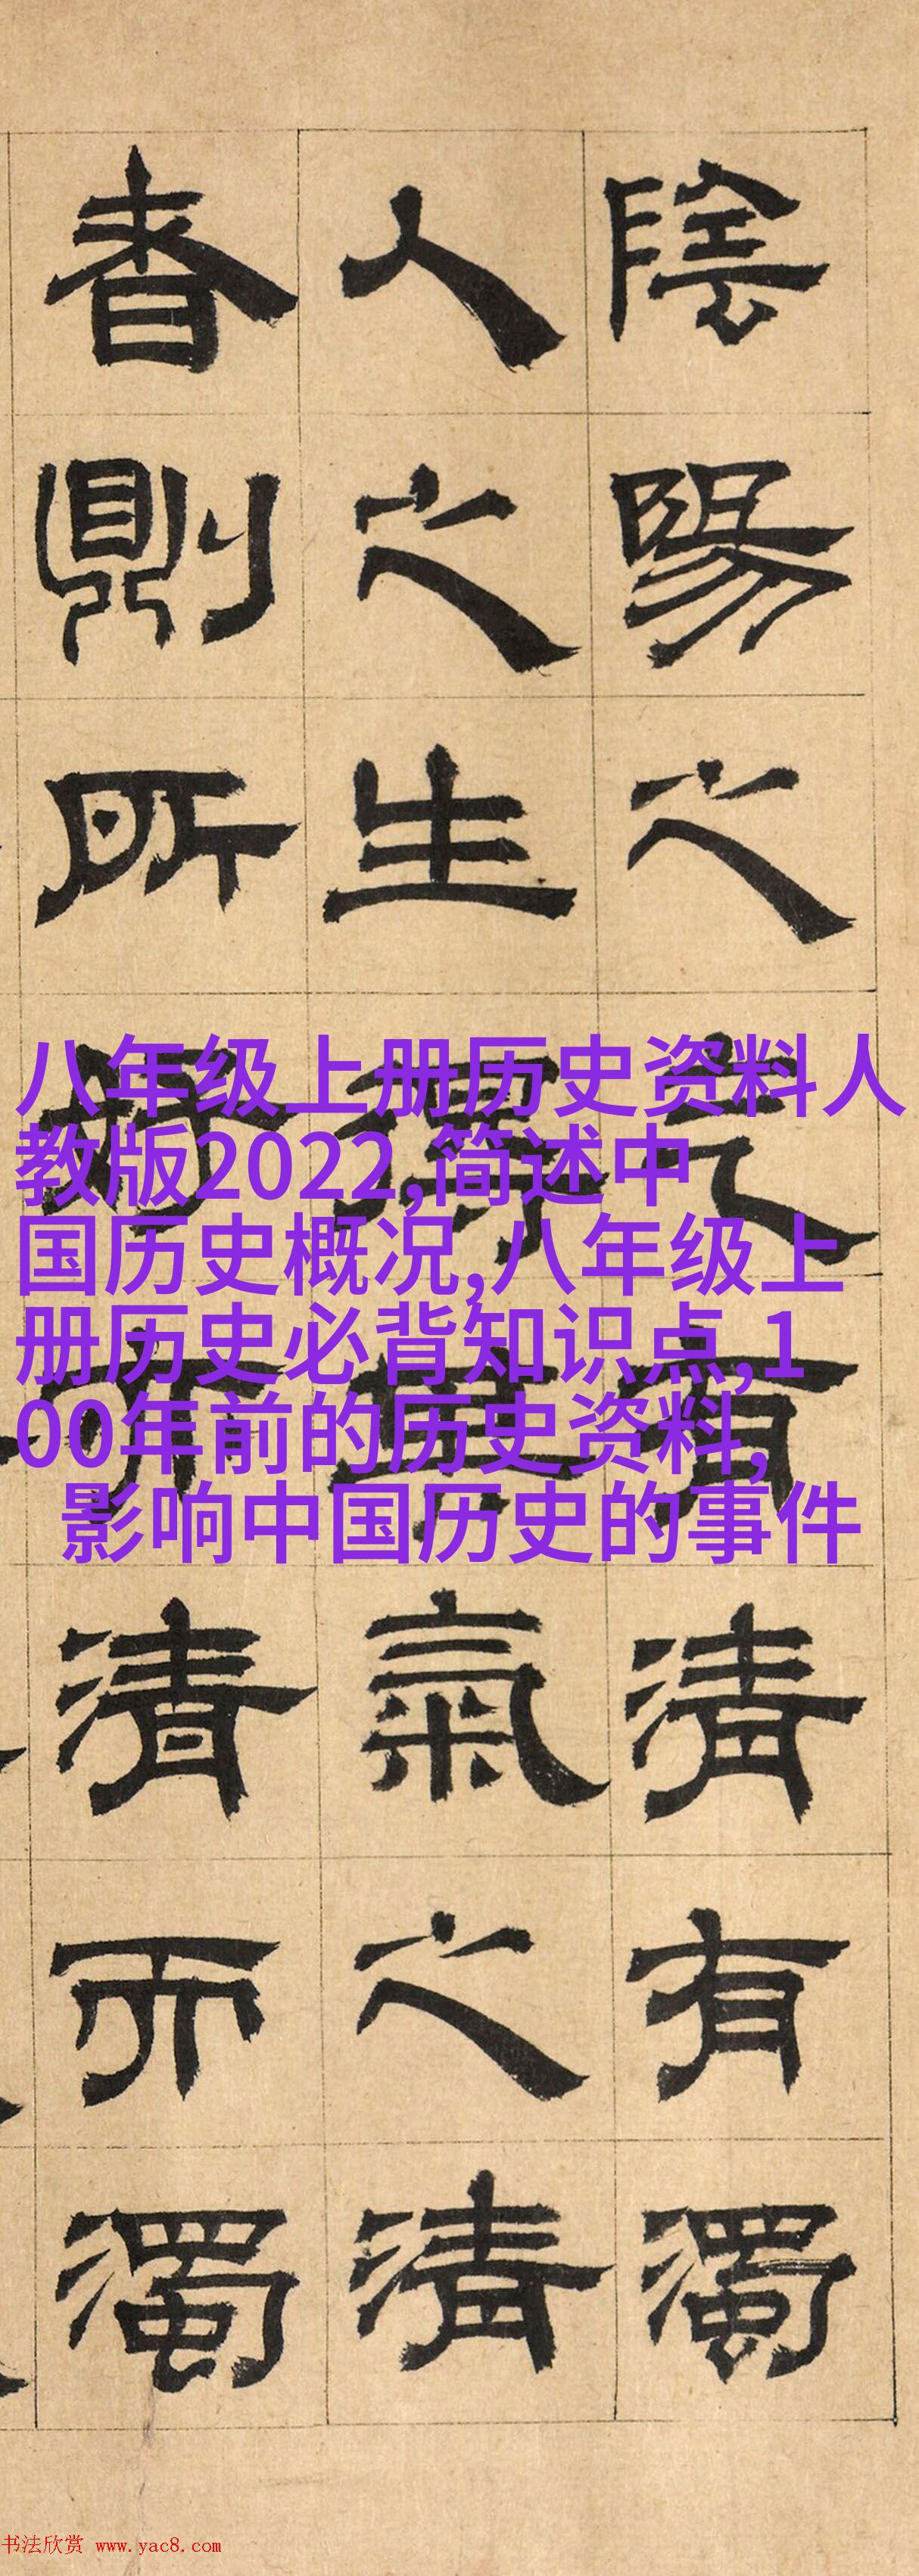 陰陽之气有清有濁
人之生氣之清
則所清而濁
八年级上册历史资料人
教版2022,简述中
国历史概况,八年级上
册历史必背知识点,1
00年前的历史资料,
影响中国历史的事件
书法欣赏 www.yac8.com